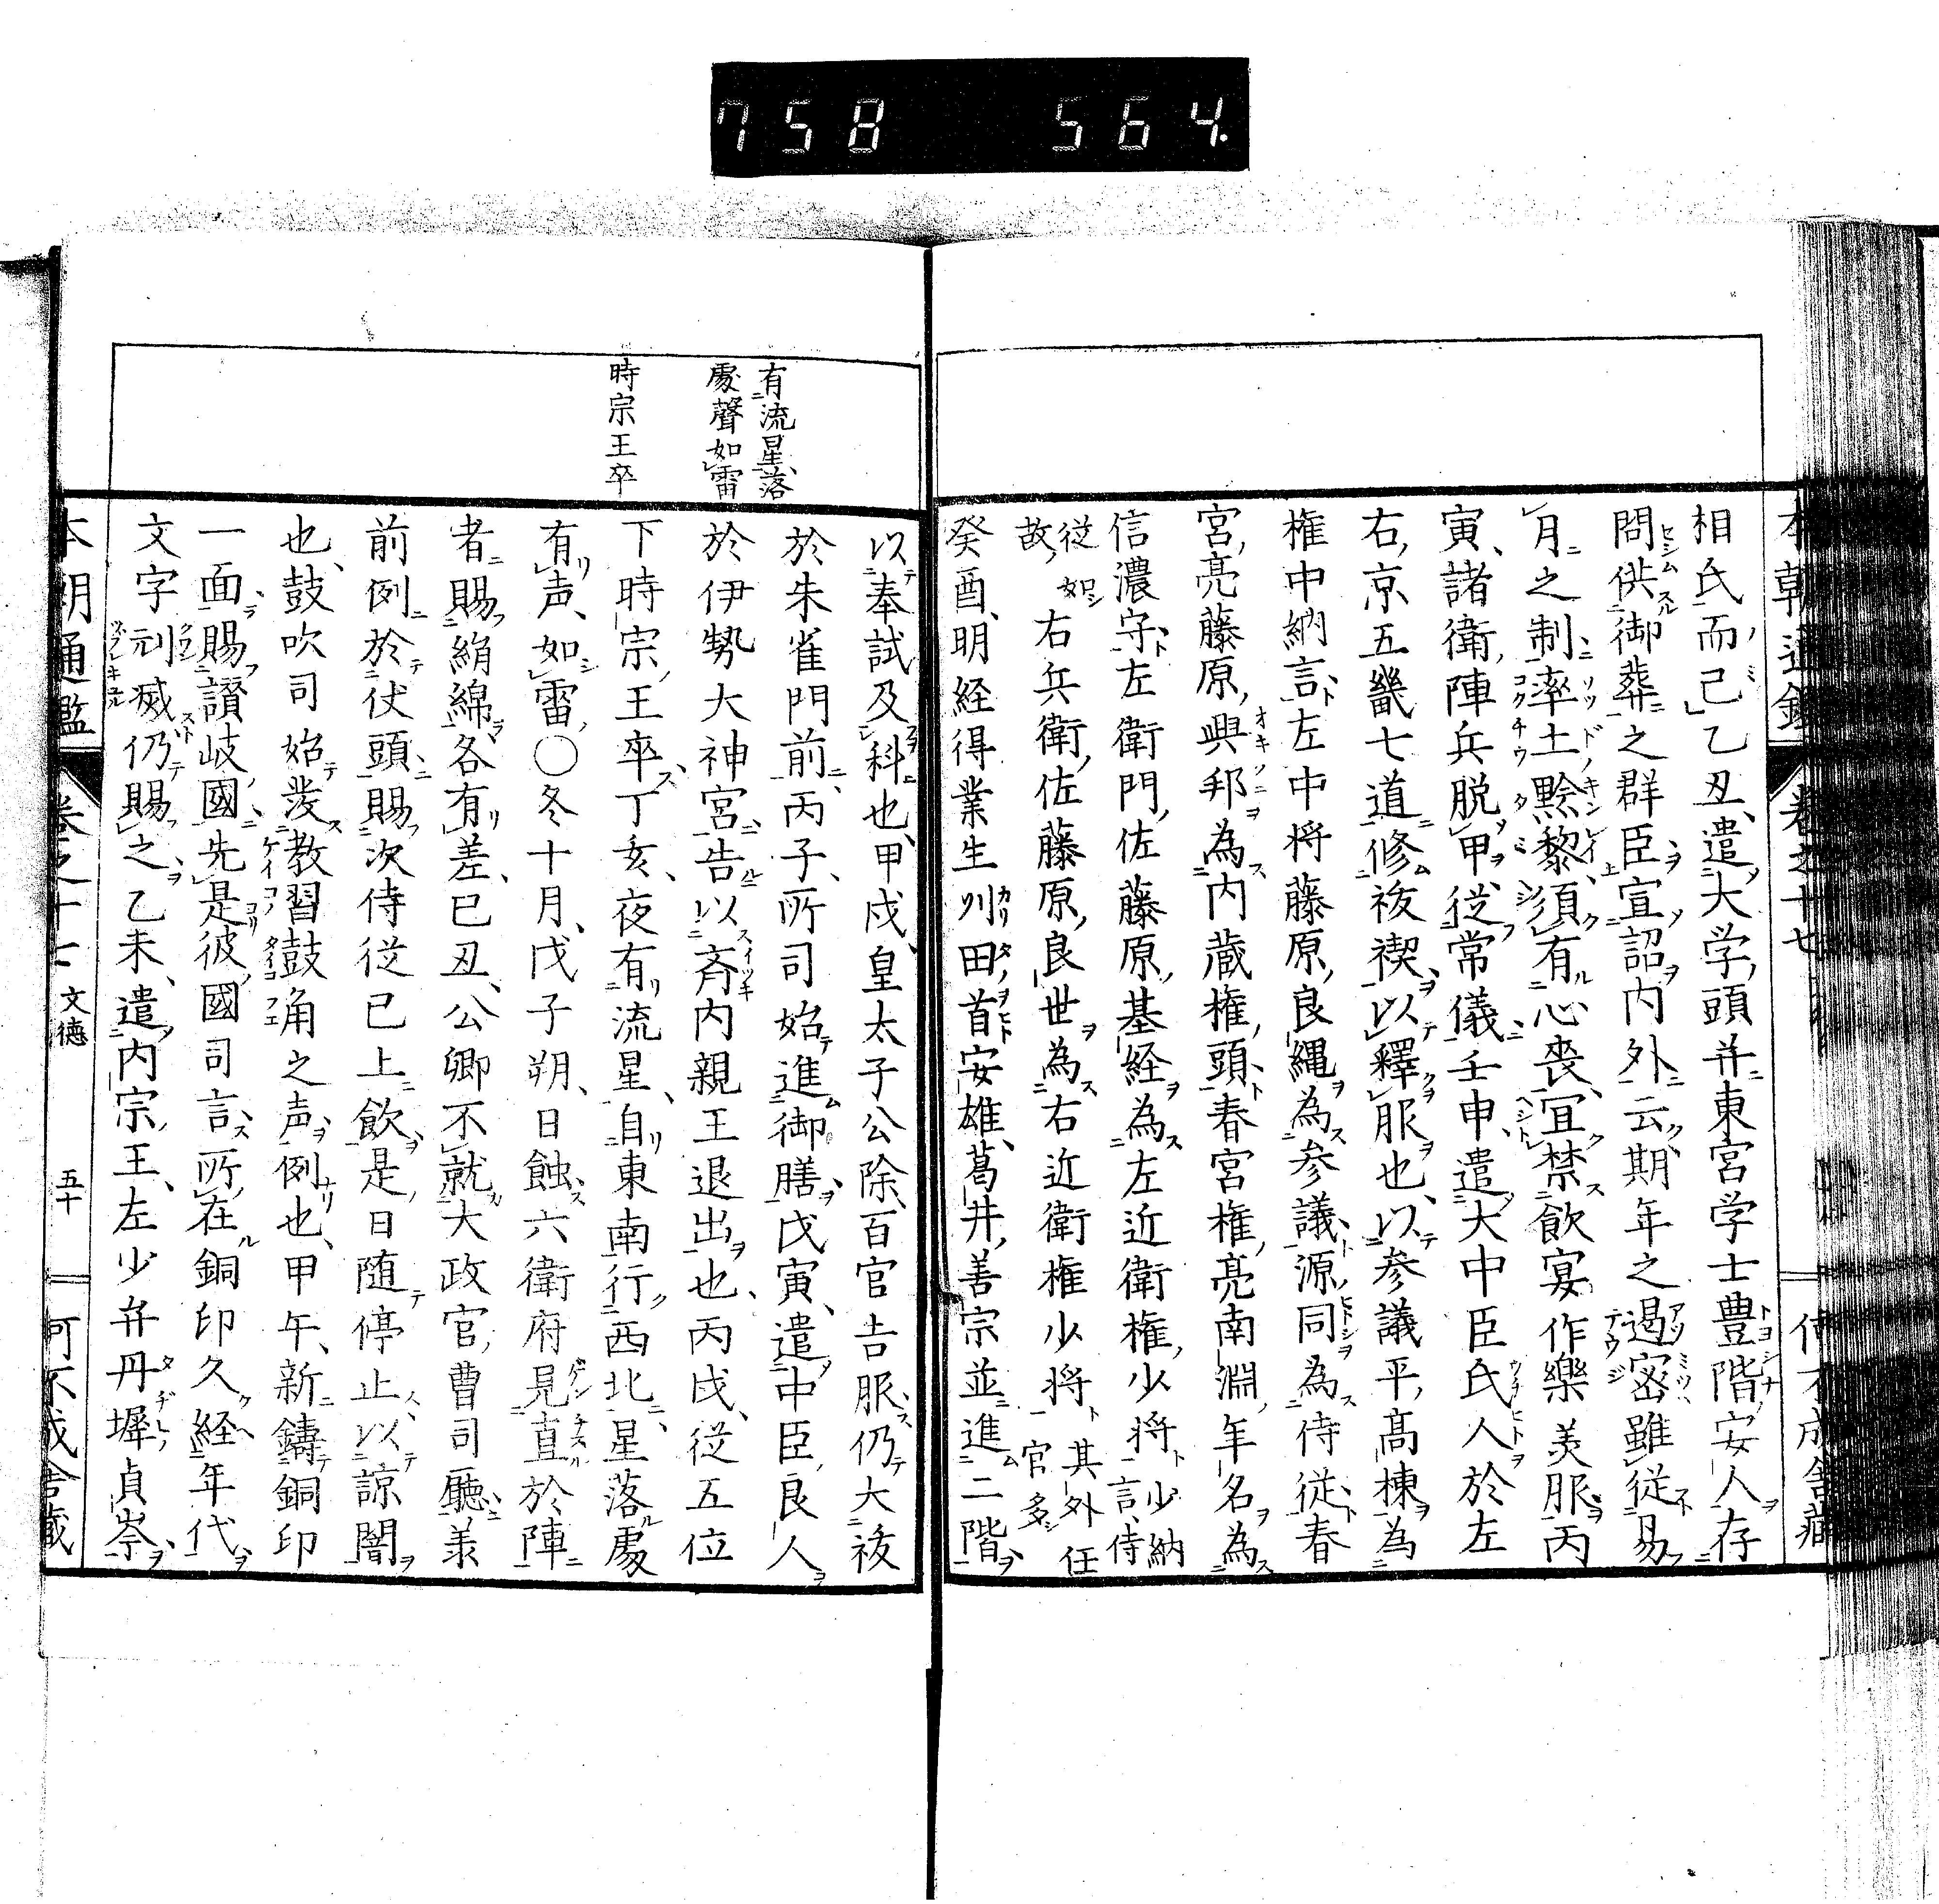 758 564.
相氏而已乙丑遣大学頭并東宮学士豊階安人存
問供御葬之群臣宣詔内外云期年之遏密雖従易
月之制率土黔黎須有心喪冝禁飲宴作樂美服丙
寅諸衛陣兵脱甲従常儀壬申遣大中臣氏人於左
右京五畿七道修祓禊以釋服也以参議平高棟為
権中納言左中将藤原良縄為参議源同為侍従春
宮亮藤原興邦為内蔵権頭春宮権亮南淵年名為
信濃守左衛門佐藤原基経為左近衛権少将少納言侍
従如故右兵衛佐藤原良世為右近衛権少将其外任官多
癸酉明経得業生刈田首安雄葛井善宗並進二階
有流星落
處聲如雷
時宗王卒
以奉試及科也甲戌皇太子公除百官吉服仍大祓
於朱雀門前丙子所司始進御膳戊寅遣中臣良人
於伊勢大神宮告以斉内親王退出也丙戌従五位
下時宗王卒丁亥夜有流星自東南行西北星落處
有声如雷〇冬十月戊子朔日蝕六衛府見直於陣
者賜絹綿各有差己丑公卿不就大政官曹司廳兼
前例於仗頭賜次侍従已上飲是日随停止以諒闇
也鼓吹司始発教習鼓角之声例也甲午新鑄銅印
一面賜讃岐國先是彼國司言所在銅印久経年代
文字刓滅仍賜之乙未遣内宗王左少弁丹墀貞岑
本朝通鑑 巻之十七 文徳 五十 何不成舎蔵